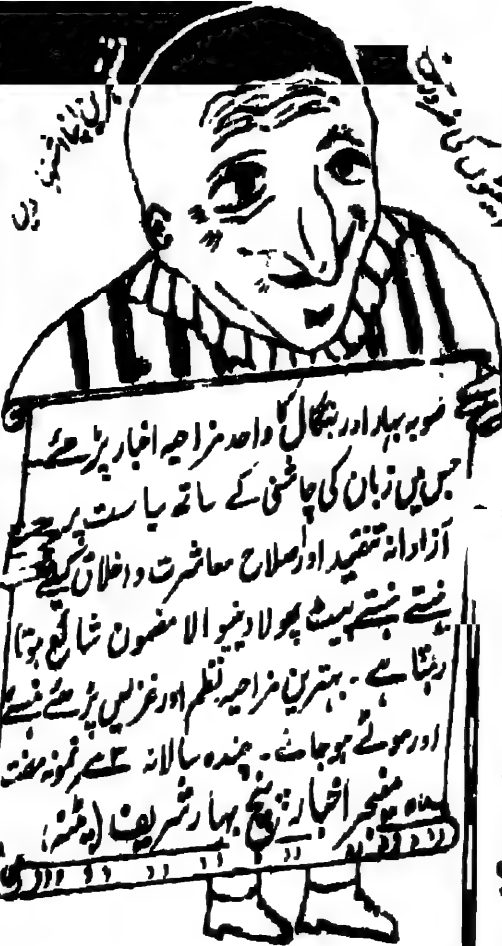 صوبہ بہار اور بنگال کا واحد مزاحیہ اخبار پڑھئے
جس میں زبان کی چاشنی کے ساتھ سیاست پر
آزادانہ تنقید اور اصلاح معاشرت و اخلاق کیلئے
ہنستے ہنستے پیٹ پھولا دینوالا مضمون شائع ہوتا
رہتا ہے ۔ بہترین مزاحیہ نظم اور غزلیں پڑھئے ہنسئے
اور موٹے ہوجائے ۔ چندہ سالانہ نمونہ مفت
منیجر اخبار پنچ بہار شریف (پٹنہ)